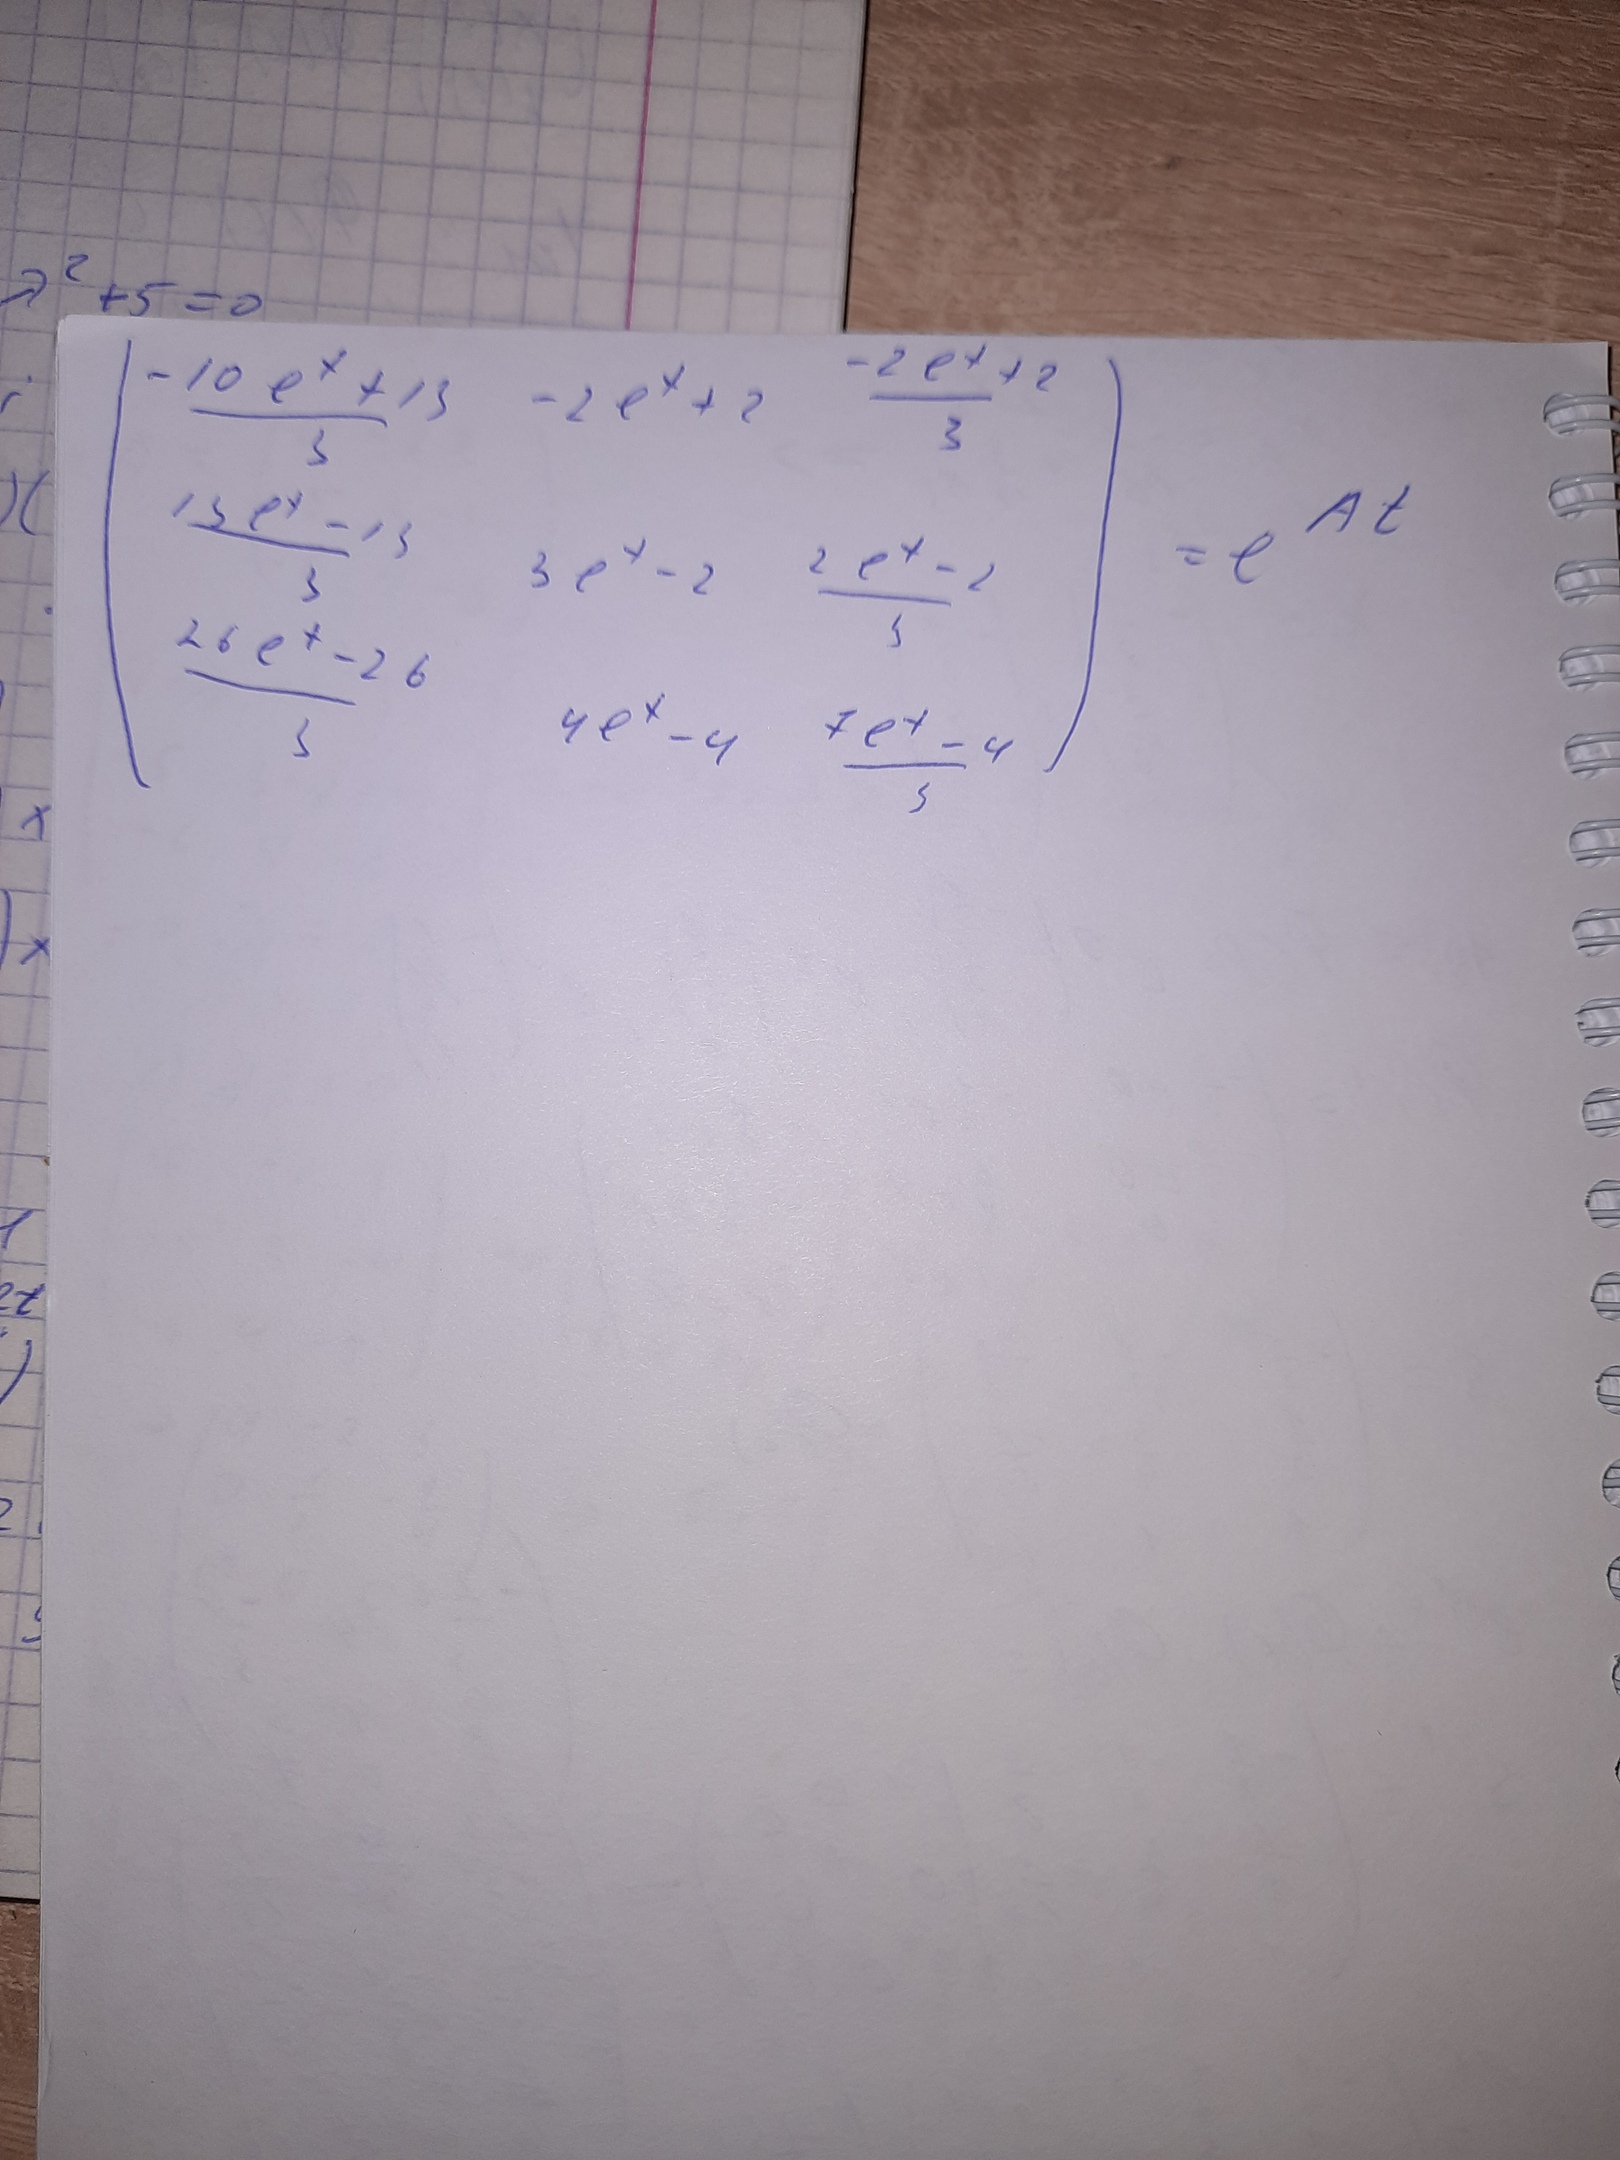 λ² + 5 = 0
-10 e^t + 13 / 3   -2e^t + 2   -2e^t + 2 / 3
13e^t - 13 / 3   3e^t - 2   2e^t - 2 / 3   = e^At
26e^t - 26 / 3   4e^t - 4   7e^t - 4 / 3
)(
x
) x
1
2t
)
2